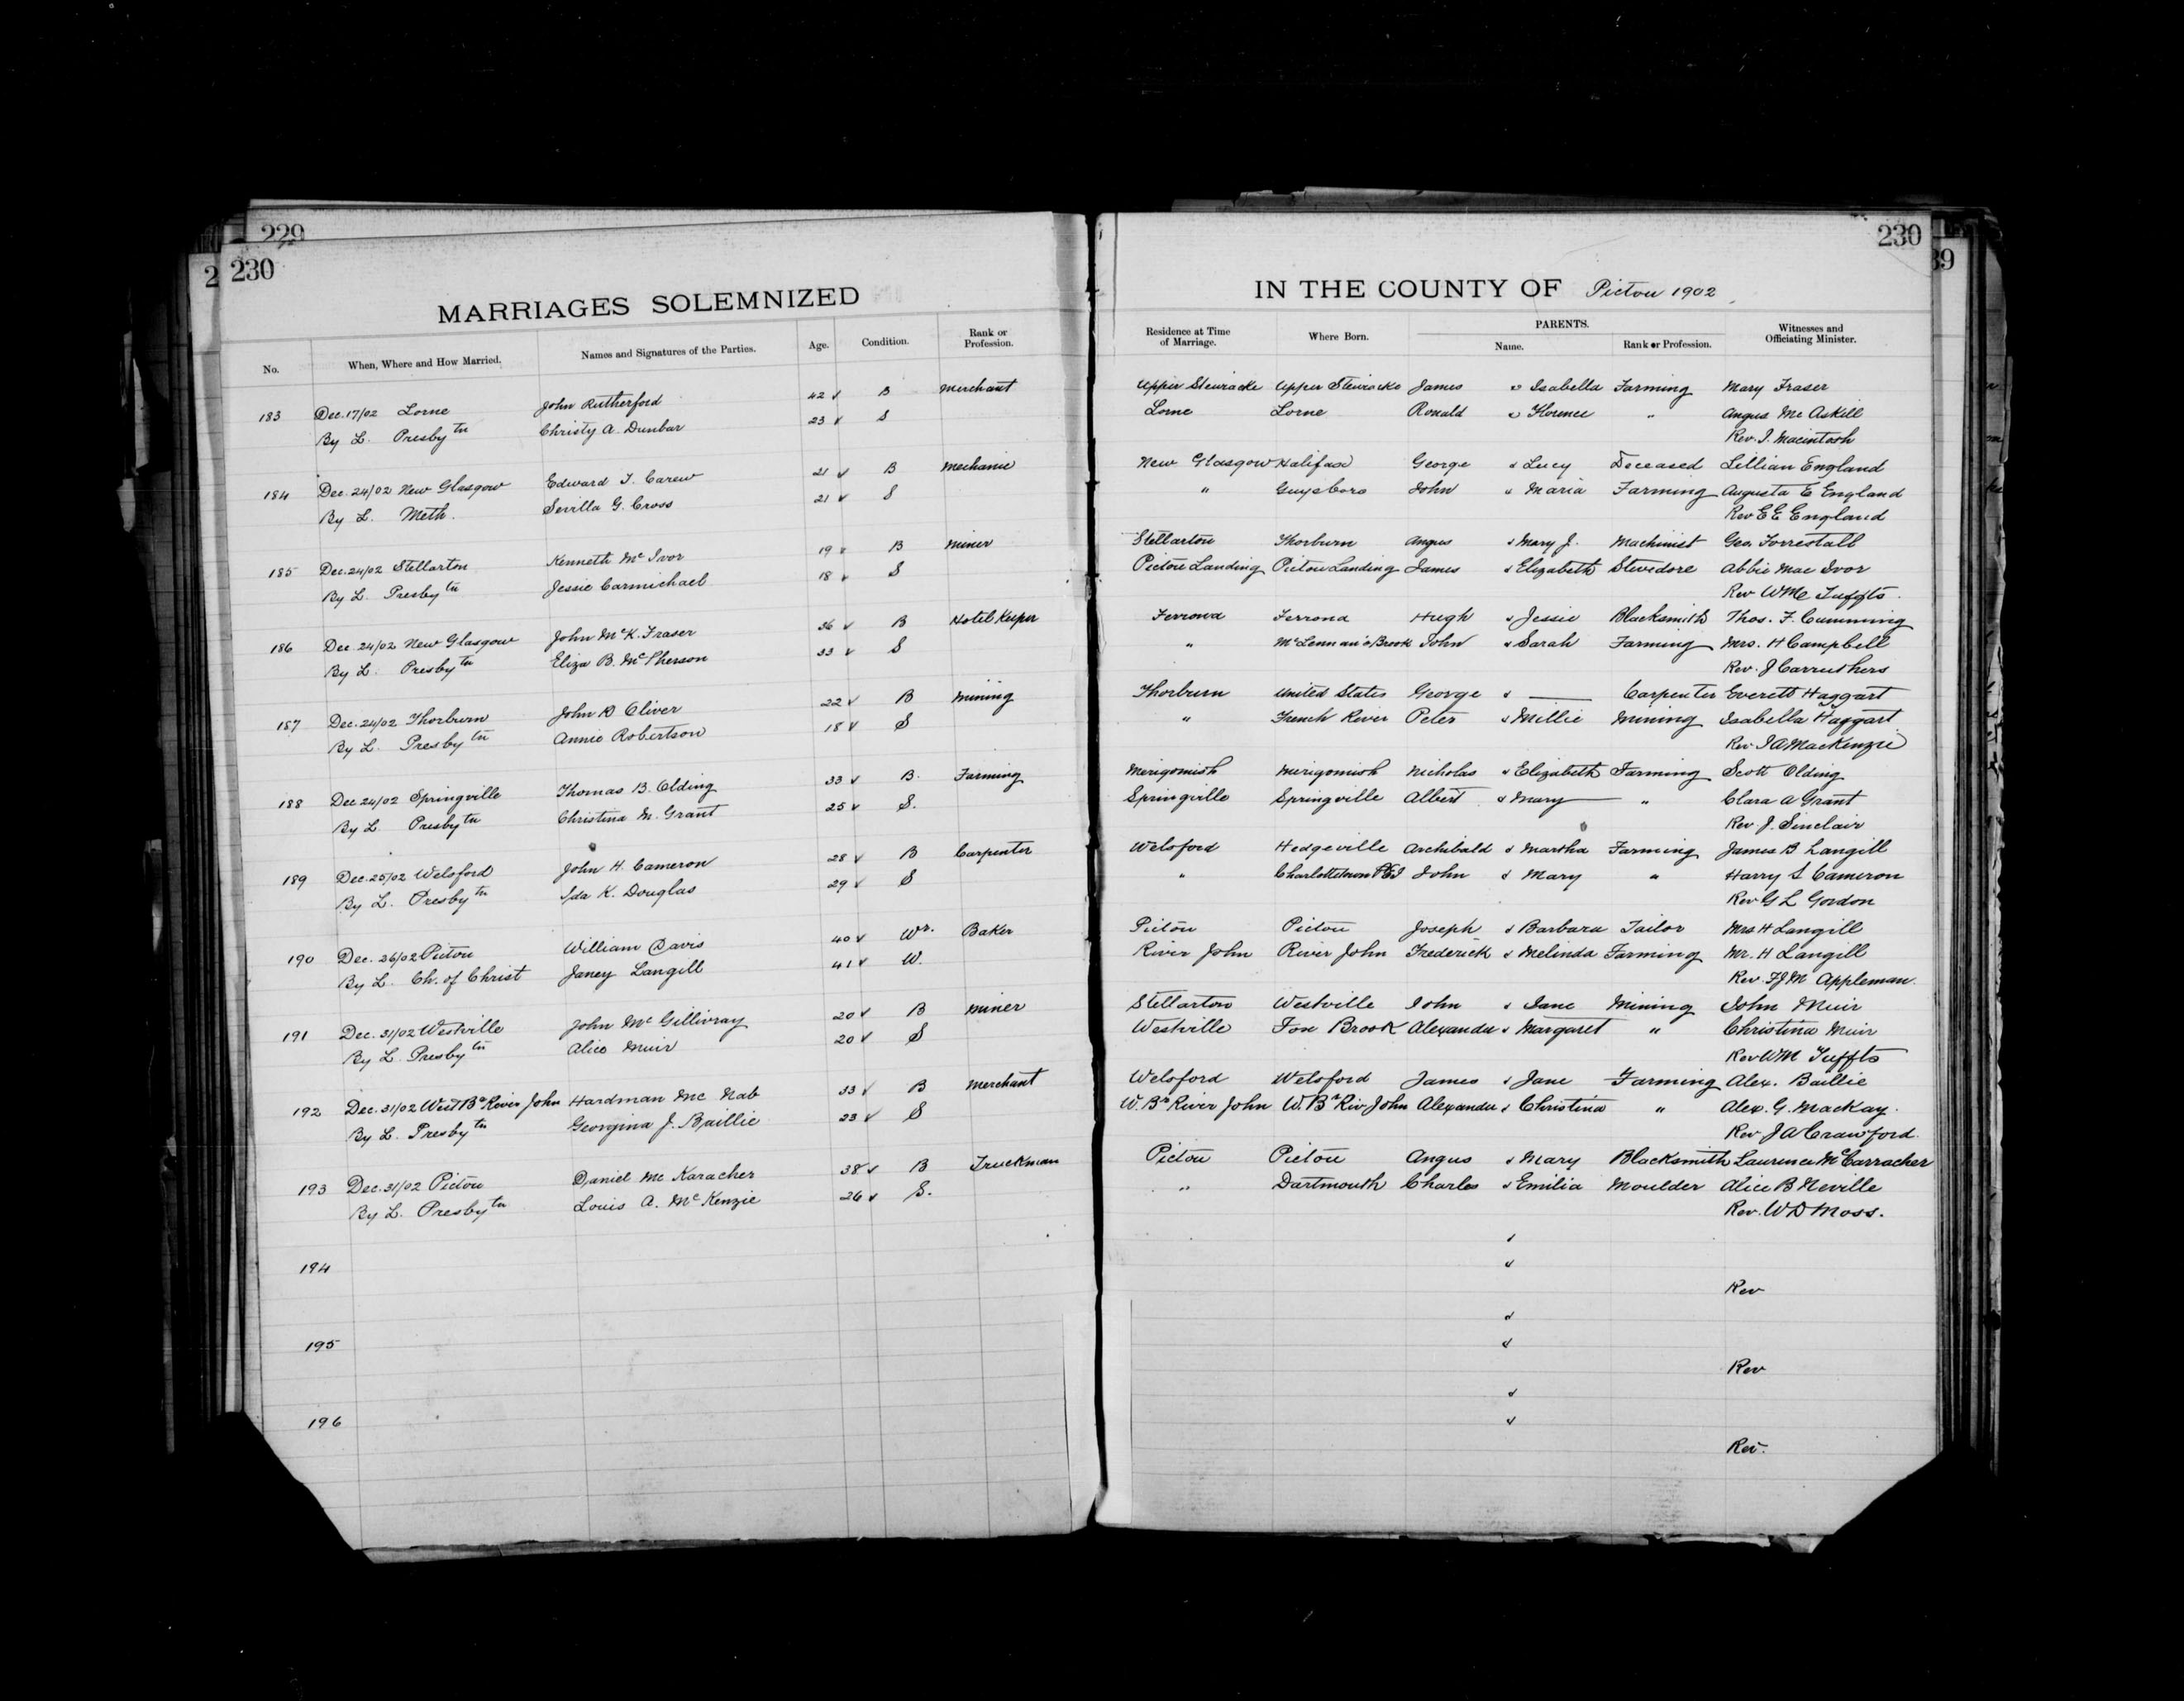 229
2 230
MARRIAGES SOLEMNIZED
No. When, Where and How Married. Names and Signatures of the Parties. Age. Condition. Rank or Profession.
183 Dec. 17/02 Lorne John Rutherford 42 B Merchant
By L. Presbytn Christy A. Dunbar 23 S
184 Dec. 24/02 New Glasgow Edward T. Carew 21 B Mechanic
By L. Meth. Sevilla G. Cross 21 S
185 Dec. 24/02 Stellarton Kenneth McIvor 19 B Miner
By L. Presbytn Jessie Carmichael 18 S
186 Dec. 24/02 New Glasgow John McK. Fraser 36 B Hotel Keeper
By L. Presbytn Eliza B. McPherson 33 S
187 Dec. 24/02 Thorburn John D Oliver 22 B Mining
By L. Presbytn Annie Robertson 18 S
188 Dec 24/02 Springville Thomas B. Olding 33 B. Farming
By L. Presbytn Christina M. Grant 25 S.
189 Dec. 25/02 Welsford John H. Cameron 28 B Carpenter
By L. Presbytn Ida K. Douglas 29 S
190 Dec. 26/02 Pictou William Davis 40 Wr. Baker
By L. Ch. of Christ Janey Langill 41 W.
191 Dec. 31/02 Westville John McGillivray 20 B Miner
By L. Presbytn Alice Muir 20 S
192 Dec. 31/02 West Br River John Hardman McNab 33 B Merchant
By L. Presbytn Georgina J. Baillie 23 S
193 Dec. 31/02 Pictou Daniel McKaracher 38 B Truckman
By L. Presbytn Louis A. McKenzie 26 S.
194
195
196
230
39
IN THE COUNTY OF Pictou 1902
Residence at Time of Marriage. Where Born. PARENTS. Name. Rank or Profession. Witnesses and Officiating Minister.
Upper Stewiacke Upper Stewiacke James & Isabella Farming Mary Fraser
Lorne Lorne Ronald & Florence " Angus McAskill
Rev. J. Macintosh
New Glasgow Halifax George & Lucy Deceased Lillian England
" Guysboro John & Maria Farming Augusta E England
Rev E E England
Stellarton Thorburn Angus & Mary J. Machinist Geo. Forrestall
Pictou Landing Pictou Landing James & Elizabeth Stevedore Abbie MacIvor
Rev WM Tuffts.
Ferrona Ferrona Hugh & Jessie Blacksmith Thos. F. Cumming
" McLennan's Brook John & Sarah Farming Mrs. H Campbell
Rev. J Carruthers
Thorburn United States George & — Carpenter Everett Haggart
" French River Peter & Millie Mining Isabella Haggart
Rev. J A MacKenzie
Merigomish Merigomish Nicholas & Elizabeth Farming Scott Olding
Springville Springville Albert & Mary " Clara A Grant
Rev J. Sinclair
Welsford Hedgeville Archibald & Martha Farming James B Langill
" Charlottetown PEI John & Mary " Harry S Cameron
Rev G L Gordon
Pictou Pictou Joseph & Barbara Tailor Mrs H Langill
River John River John Frederick & Melinda Farming Mr. H Langill
Rev. FJM Appleman.
Stellarton Westville John & Jane Mining John Muir
Westville Fox Brook Alexander & Margaret " Christina Muir
Rev WM Tuffts
Welsford Welsford James & Jane Farming Alex. Baillie
W. Br River John W. Br Riv John Alexander & Christina " Alex. G. MacKay.
Rev J A Crawford.
Pictou Pictou Angus & Mary Blacksmith Laurence McCarracher
" Dartmouth Charles & Emilia Moulder Alice B Neville
Rev. W D Moss.
&
&
Rev
&
&
Rev
&
&
Rev.